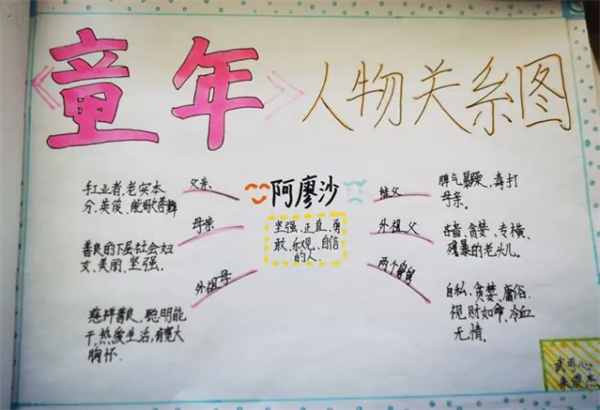 《童年》人物关系图
阿廖沙
坚强、正直、勇
敢、乐观、自信
的人。
父亲
手工业者,老实本
分,英俊,能歌善舞
母亲
善良的下层社会妇
女、美丽、坚强。
外祖母
慈祥善良,聪明能
干,热爱生活,有宽大
胸怀.
继父
脾气暴躁,毒打
母亲。
外祖父
吝啬、贪婪、专横、
残暴的老头儿。
两个舅舅
自私、贪婪、庸俗、
视财如命、冷血
无情。